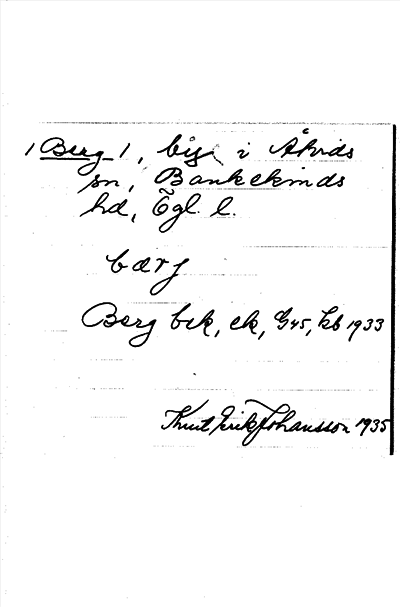 /Berg/, by i Åtvids
sn, Bankekinds
hd, Ögl. l.
bærj
Berg bek, ek, G45, kb 1933
Knut Erik Johansson 1935